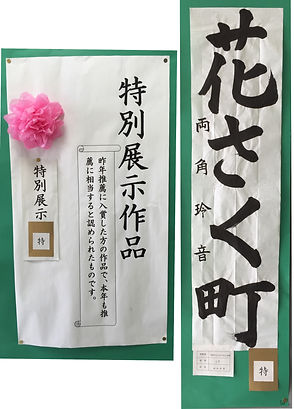 花さく町
両角玲音
特
特別展示作品
昨年推薦に入賞した方の作品で、本年も推
薦に相当すると認められたものです。
特別展示
特